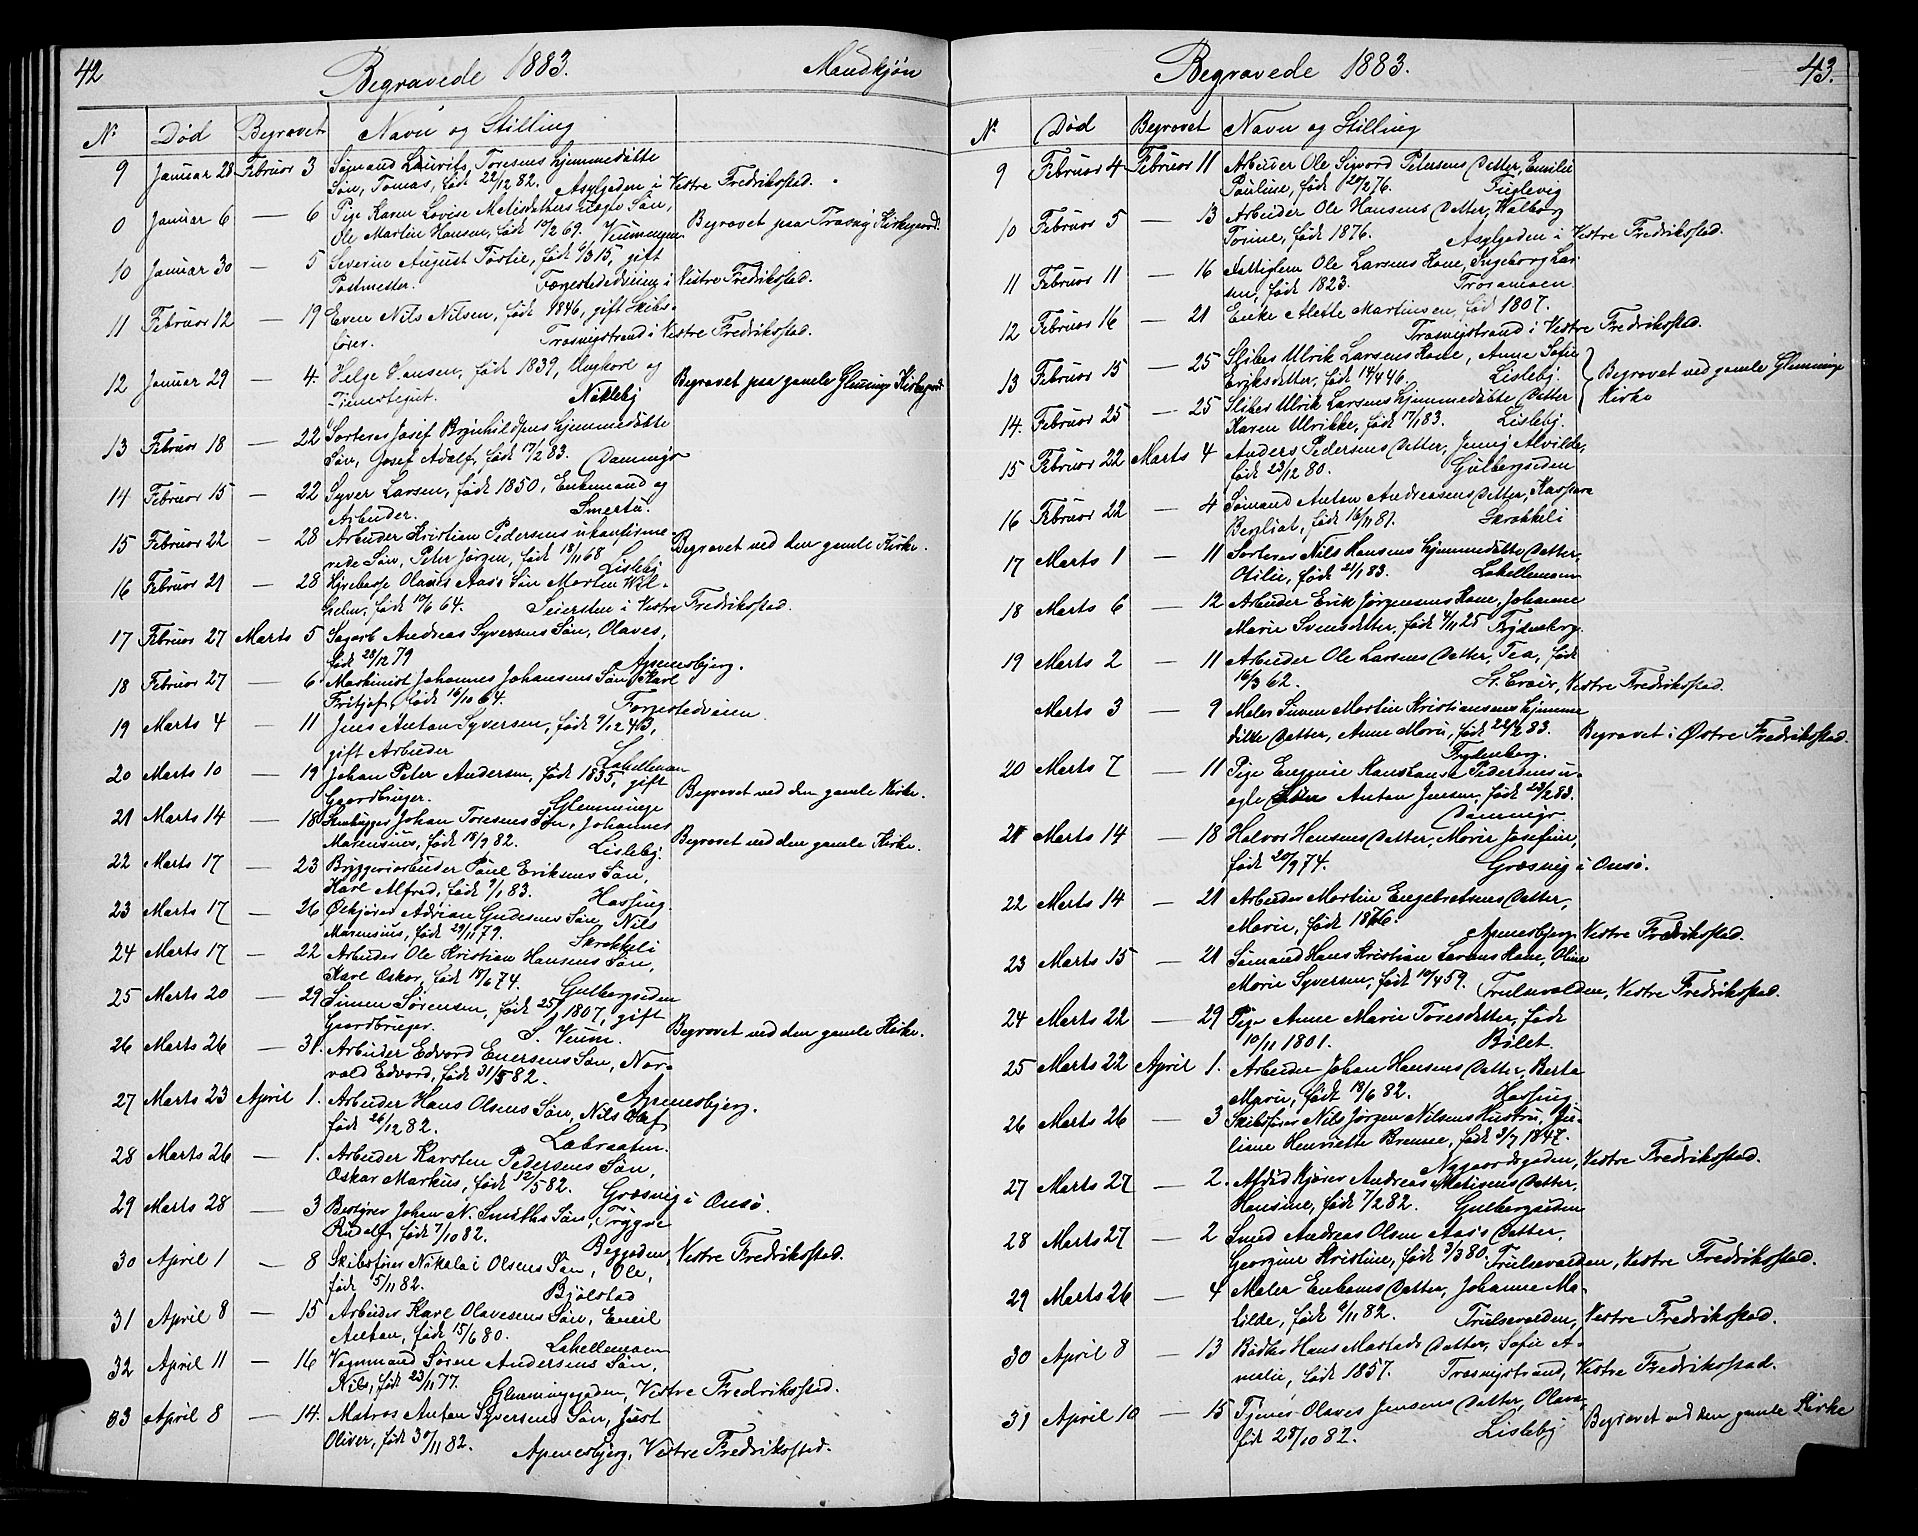 42
Begravede 1883.
Mandkjøn
No Død Begravet Navn og Stilling
9 Januar 28 Februar 3 Sømand Laurits Toresens hjemmedøbte
Søn, Tomas, født 22/12 82. Asylgaden i Vestre Fredrikstad.
0 Januar 6 — 6 Pige Karen Lovise Matisdatters uægte Søn,
Ole Martin Hansen, født 10/2 69. Veumengen Begravet paa Trosvig Kirkegaard.
10 Januar 30 — 5 Severin August Tortie, født 1815, gift
Postmester. Færgestedsveien i Vestre Fredrikstad.
11 Februar 12 — 19 Even Nils Nilsen, født 1846, gift Skibs-
fører. Trosvigstrand i Vestre Fredrikstad.
12 Januar 29 — 4. Helge Hansen, født 1839, Ungkarl og
Tjenestegut. Nøkleby Begravet paa gamle Glemminge Kirkegaard.
13 Februar 18 — 22 Sorterer Josef Brynhildsens hjemmedøbte
Søn, Josef Adolf, født 17/2 83. Dammyr
14 Februar 15 — 22 Syver Larsen, født 1850, Enkemand og
Arbeider. Smertu.
15 Februar 22 — 28 Arbeider Kristian Pedersens ukonfirme-
rede Søn, Peter Jørgen, født 18/11 68. Lisleby Begravet ved den gamle Kirke.
16 Februar 21 — 28 Hyrebasse Olaves Aas's Søn Morten Wil-
helm, født 10/6 64. Seiersten i Vestre Fredrikstad.
17 Februar 27 Marts 5 Sagarb. Andreas Syversens Søn, Olaves,
født 28/12 79 Apenesbjerg.
18 Februar 27 — 6. Maskinist Johannes Johansens Søn, Karl
Fritjof, født 16/10 64. Færgestedveien.
19 Marts 4 — 11 Jens Anton Syversen, født 9/12 43,
gift Arbeider Lahelleman
20 Marts 10 — 19 Johan Peter Andersen, født 1835, gift
Gaardbruger. Glemminge Begravet ved den gamle Kirke.
21 Marts 14 — 18 Stenhugger Johan Toresens Søn, Johannes
Marensius, født 18/9 82. Lisleby. Begravet ved den gamle Kirke.
22 Marts 17 — 23 Bryggeriarbeider Paul Eriksens Søn,
Karl Alfred, født 9/1 83. Hassing.
23 Marts 17 — 26 Ølkjører Adrian Gudesens Søn, Nils
Marensius, født 29/11 79. Skrokkeli
24 Marts 17 — 22 Arbeider Ole Kristian Hansens Søn,
Karl Oskar, født 18/6 74. Gulbergseden
25 Marts 20 — 29 Simen Sørensen, født 25/1 1807, gift
Gaardbruger. S. Veum. Begravet ved den gamle Kirke.
26 Marts 26 — 31. Arbeider Edvard Enersens Søn, Nor-
vald Edvard, født 31/5 82. Apenesbjerg.
27 Marts 23 April 1. Arbeider Hans Olsens Søn, Nils Olaf
født 26/12 82. Labraaten.
28 Marts 26 — 1. Arbeider Karsten Pedersens Søn,
Oskar Markus, født 12/5 82. Græsvig i Onsø.
29 Marts 28 — 3 Bestyrer Johan N. Smiths Søn, Trygve
Rudolf, født 7/10 82. Beggaden, Vestre Fredrikstad.
30 April 1 — 8 Skibsfører Nikolai Olsens Søn, Ole,
født 5/11 82. Bjølstad
31 April 8 — 15 Arbeider Karl Olavesens Søn, Emil
Anton, født 15/6 80. Lahelleman
32 April 11 — 16 Vognmand Søren Andersens Søn,
Nils, født 23/11 77. Glemmingegaden, Vestre Fredrikstad.
33 April 8 — 14. Matros Anton Syversens Søn, Just
Oliver, født 30/11 82. Apenesbjerg, Vestre Fredrikstad.
Begravede 1883.
43.
No Død Begravet Navn og Stilling
9 Februar 4 Februar 11 Arbeider Ole Sigvard Petersens Datter, Emilie
Pauline, født 20/2 76. Fuglevig
10 Februar 5 — 13 Arbeider Ole Hansens Datter, Walborg
Torine, født 1876. Asylgaden i Vestre Fredrikstad.
11 Februar 11 — 16 Fattiglem Ole Larsens Kone, Ingeborg Lar-
sen, født 1823. Trosamoen
12 Februar 16 — 21 Enke Alette Martinsen, fød 1807.
Trosvigstrand i Vestre Fredrikstad.
13 Februar 15 — 25 Sliber Ulrik Larsens Kone, Anne Sofie
Eriksdatter, født 14/4 46. Lisleby. Begravet ved gamle Glemminge
14. Februar 25 — 25 Sliber Ulrik Larsens hjemmedøbte Datter Kirke
Karen Ulrikke, født 17/1 83. Lisleby.
15 Februar 22 Marts 4 Anders Pedersens Datter, Jenny Alvilde,
født 23/12 80. Gulbergseden
16 Februar 22 — 4 Sømand Anton Andreasens Datter, Kaspara
Bergliot, født 16/11 81. Skrokkeli
17 Marts 1 — 11 Sorterer Nils Hansens hjemmedøbte Datter,
Otilie, født 21/1 83. Lahellemoen
18 Marts 6 — 12 Arbeider Erik Jørgensens Kone, Johanne
Marie Svensdatter, født 4/11 25 Frydenberg.
19 Marts 2 — 11 Arbeider Ole Larsens Datter, Tea, født
16/3 62. St. Croix, Vestre Fredrikstad.
Marts 3 — 9 Maler Simen Martin Kristiansens hjemme
døbte Datter, Anne Marie, født 22/2 83. Begravet i Østre Fredrikstad.
Frydenberg.
20 Marts 7 — 11 Pige Engmie Konstanse Pedersens u-
ægte Anton Jensen, født 23/2 83.
Dammyr
21 Marts 14 — 18 Halvor Hansens Datter, Marie Josefine,
født 20/9 74. Græsvig i Onsø.
22 Marts 14 — 21 Arbeider Martin Engebretsens Datter,
Marie, født 1876. Apenesbjerg Vestre Fredrikstad.
23 Marts 15 — 21 Sømand Hans Kristian Larsens Kone, Oline
Marie Syversen, født 10/4 59. Trulsevalden, Vestre Fredrikstad.
24 Marts 22 — 29 Pige Anne Marie Toresdatter, født
10/11 1801. Bilet.
25 Marts 22 April 1. Arbeider Johan Hansens Datter, Berta
Marie, født 18/6 82. Hassing.
26 Marts 26 — 3 Skibsfører Nils Jørgen Nilsens Hustru, Ju-
liane Henriette Bremer, født 3/7 1847.
Nygaardsgaden, Vestre Fredrikstad.
27 Marts 27 — 2. Afdød Kjører Andreas Matisens Datter,
Hansine, født 7/2 82. Gulbergseden
28 Marts 27 — 2 Smed Andreas Olsen Aas's Datter,
Georgine Kristine, født 3/3 80. Trulsevalden, Vestre Fredrikstad.
29 Marts 26 — 4 Maler Enboms Datter, Johanne Ma-
tilde, født 9/11 82. Trulsevalden, Vestre Fredrikstad.
30 April 8 — 13 Bødker Hans Mastads Datter, Sofie A-
melie, født 1857. Trosvigstrand, Vestre Fredrikstad.
31 April 10 — 15 Tjener Olaves Jensens Datter, Olava
født 28/10 82. Lisleby Begravet ved den gamle Kirke